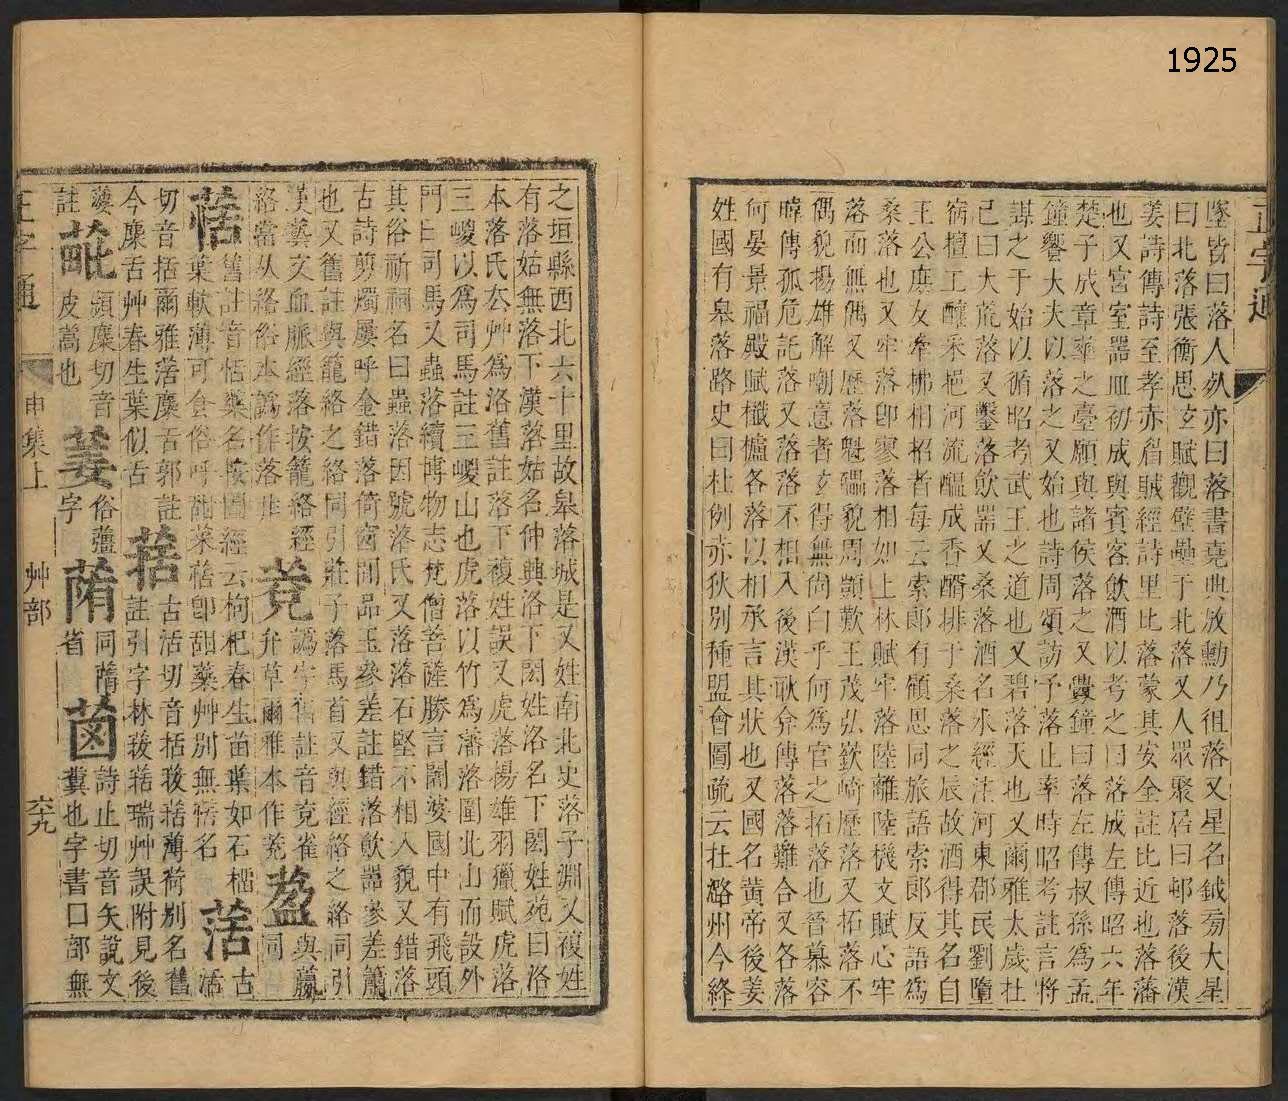 1925
正字通
墜皆曰落人死亦曰落書堯典放勳乃徂落又星名鉞旁大星
曰北落張衡思玄賦觀壁壘于北落又人眾聚居曰邨落後漢
姜詩傳詩至孝赤眉賊經詩里比落蒙其安全註比近也落藩
也又宮室器皿初成與賓客飲酒以考之曰落成左傳昭六年
楚子成章華之臺願與諸侯落之又釁鐘曰落左傳叔孫為孟
鐘饗大夫以落之又始也詩周頌訪予落止率時昭考註言將
謀之于始以循昭考武王之道也又碧落天也又爾雅太歲在
己曰大荒落又鑿落飲器又桑落酒名水經注河東郡民劉墮
宿擅工釀采挹河流醞成香醑排于桑落之辰故酒得其名自
王公庶友牽拂相招者每云索郎有顧思同旅語索郎反語為
桑落也又牢落卽寥落相如上林賦牢落陸離陸機文賦心牢
落而無偶又歷落魁礨貌周顗歎王茂弘嶔崎歷落又拓落不
偶貌揚雄解嘲意者玄得無尚白乎何為官之拓落也晉慕容
暐傳孤危託落又落落不相入後漢耿弇傳落落難合又各落
何晏景福殿賦櫼櫨各落以相承言其狀也又國名黃帝後姜
姓國有皋落路史曰杜例赤狄別種盟會圖疏云在潞州今絳
之垣縣西北六十里故皋落城是又姓南北史落子淵又複姓
有落姑無落下漢落姑名仲興洛下閎姓洛名下閎姓苑曰洛
本落氏厺艸為洛舊註落下複姓誤又虎落揚雄羽獵賦虎落
三嵕以為司馬註三嵕山也虎落以竹為藩落圍北山而設外
門曰司馬又蟲落續博物志梵僧菩薩勝言闍婆國中有飛頭
其俗祈祠名曰蟲落因號落氏又落落石堅不相入貌又錯落
古詩剪燭屢呼金錯落倚窗閒品玉參差註錯落飲器參差簫
也又舊註與籠絡之絡同引莊子落馬首又與經絡之絡同引
漢藝文血脈經落按籠絡經絡當从絡俗本譌作落非
萖 譌字舊註音莧雀弁草爾雅本作萖
蒀 與蘊同
葀 舊註音恬藥名按圖經云枸杞春生苗葉如石榴葉軟薄可食俗呼甜菜葀卽甜藥艸別無葀名
萿 古活切音括爾雅萿麋舌郭註今麋舌艸春生葉似舌
葀 古活切音括菝葀薄荷別名舊註引字林菝葀瑞艸誤附見後
蓌註
蓖 頻麋切音皮蒿也
葁 俗薑字
蓨 同蓨省
菡 詩止切音矢說文糞也字書囗部無
正字通
申集上
艸部
六十九